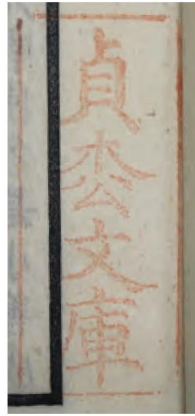 貞松文庫